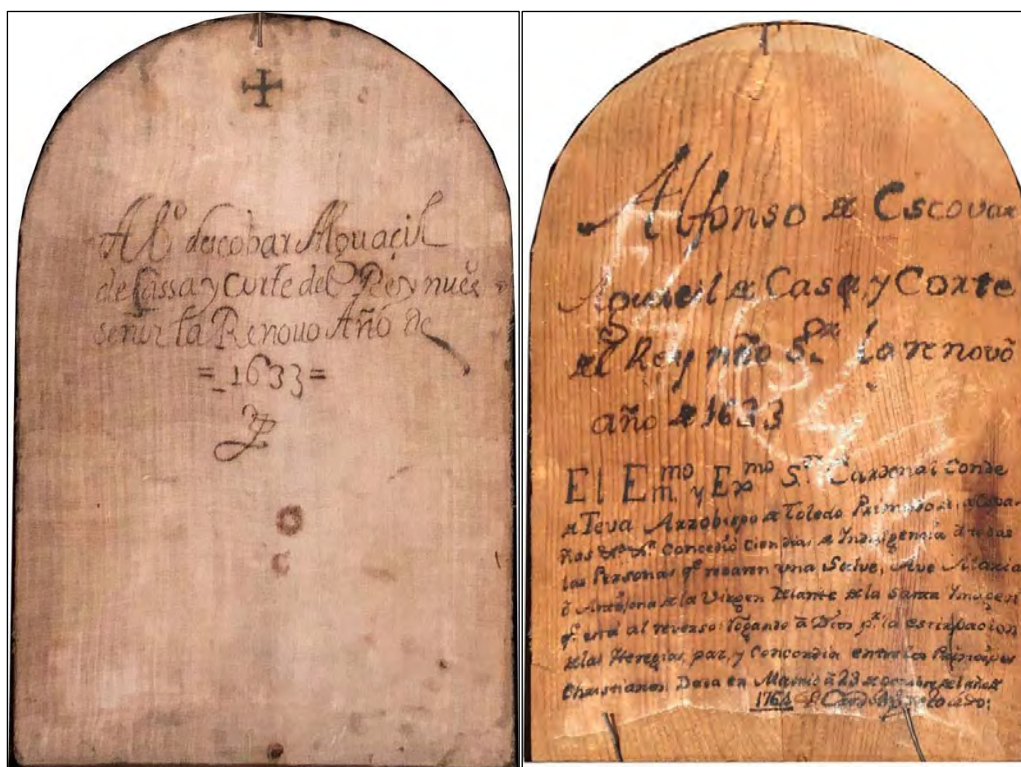 Alº descobar Alguaçil
de Cassa y Corte del Rey nuesº
señor la Renovo Año de
=1633=
Alfonso de Escovar
Alguacil de Casa, y Corte
del Rey nrō Sor. la renovō
año de 1633
El Emmo. y Exmo Sor. Cardenal Conde
de Teva Arzobispo de Toledo Primado de las Espa-
ñas &c. &c. Concediō cien dias de Indulgencia â todas
las Personas qe. rezaren una Salve, Ave Maria
ō Antifona de la Virgen Delante de la Santa Ymagen
qe. està al reverso: rogando à Dios pr. la estirpacion
de las Heregias, paz, y Concordia entre los Principes
Christianos. Dada en Madrid à 23 de octubre del año de
1764